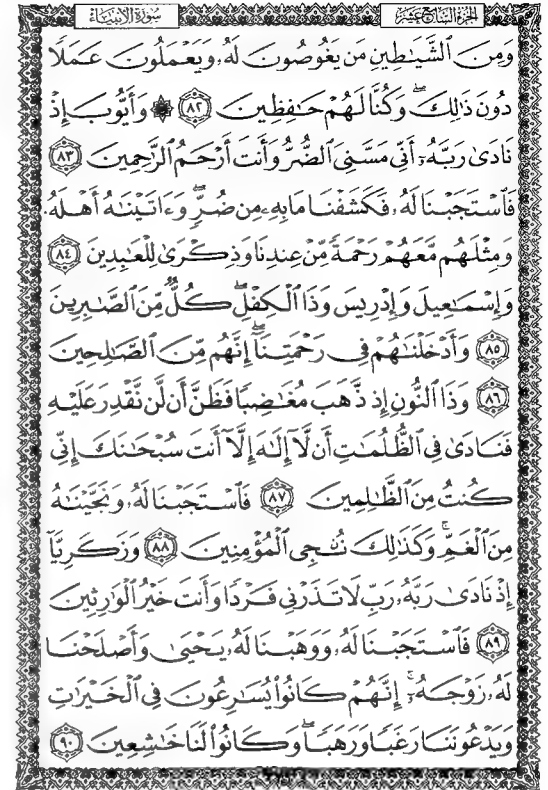 الجزء السابع عشر
سورة الأنبياء
وَمِنَ ٱلشَّيَـٰطِينِ مَن يَغُوصُونَ لَهُۥ وَيَعْمَلُونَ عَمَلًا
دُونَ ذَٰلِكَ ۖ وَكُنَّا لَهُمْ حَـٰفِظِينَ ﴿٨٢﴾ ۞ وَأَيُّوبَ إِذْ
نَادَىٰ رَبَّهُۥٓ أَنِّى مَسَّنِىَ ٱلضُّرُّ وَأَنتَ أَرْحَمُ ٱلرَّٰحِمِينَ ﴿٨٣﴾
فَٱسْتَجَبْنَا لَهُۥ فَكَشَفْنَا مَا بِهِۦ مِن ضُرٍّ ۖ وَءَاتَيْنَـٰهُ أَهْلَهُۥ
وَمِثْلَهُم مَّعَهُمْ رَحْمَةً مِّنْ عِندِنَا وَذِكْرَىٰ لِلْعَـٰبِدِينَ ﴿٨٤﴾
وَإِسْمَـٰعِيلَ وَإِدْرِيسَ وَذَا ٱلْكِفْلِ ۖ كُلٌّ مِّنَ ٱلصَّـٰبِرِينَ
﴿٨٥﴾ وَأَدْخَلْنَـٰهُمْ فِى رَحْمَتِنَآ ۖ إِنَّهُم مِّنَ ٱلصَّـٰلِحِينَ
﴿٨٦﴾ وَذَا ٱلنُّونِ إِذ ذَّهَبَ مُغَـٰضِبًا فَظَنَّ أَن لَّن نَّقْدِرَ عَلَيْهِ
فَنَادَىٰ فِى ٱلظُّلُمَـٰتِ أَن لَّآ إِلَـٰهَ إِلَّآ أَنتَ سُبْحَـٰنَكَ إِنِّى
كُنتُ مِنَ ٱلظَّـٰلِمِينَ ﴿٨٧﴾ فَٱسْتَجَبْنَا لَهُۥ وَنَجَّيْنَـٰهُ
مِنَ ٱلْغَمِّ ۚ وَكَذَٰلِكَ نُـۨجِى ٱلْمُؤْمِنِينَ ﴿٨٨﴾ وَزَكَرِيَّآ
إِذْ نَادَىٰ رَبَّهُۥ رَبِّ لَا تَذَرْنِى فَرْدًا وَأَنتَ خَيْرُ ٱلْوَٰرِثِينَ
﴿٨٩﴾ فَٱسْتَجَبْنَا لَهُۥ وَوَهَبْنَا لَهُۥ يَحْيَىٰ وَأَصْلَحْنَا
لَهُۥ زَوْجَهُۥٓ ۚ إِنَّهُمْ كَانُوا۟ يُسَـٰرِعُونَ فِى ٱلْخَيْرَٰتِ
وَيَدْعُونَنَا رَغَبًا وَرَهَبًا ۖ وَكَانُوا۟ لَنَا خَـٰشِعِينَ ﴿٩٠﴾